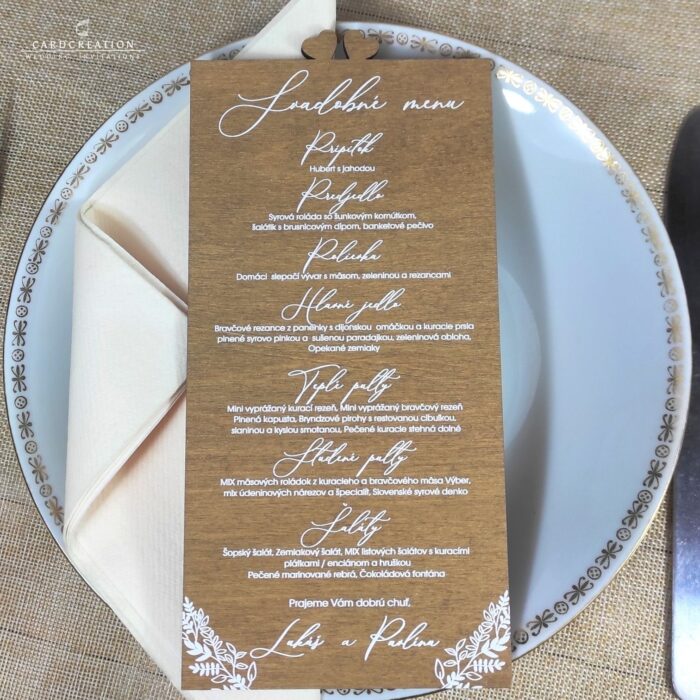 CARDCREATION
WEDDING INVITATIONS
Svadobné menu
Prípitok
Hubert s jahodou
Predjedlo
Syrová roláda so šunkovým kornútkom,
šalátik s brusnicovým dipom, banketové pečivo
Polievka
Domáci slepačí vývar s mäsom, zeleninou a rezancami
Hlavné jedlo
Bravčové rezance z panlinky s dijonskou omáčkou a kuracie prsia
plnené syrovo plnkou a sušenou paradajkou, zeleninová obloha,
Opekané zemiaky
Teplé pulty
Mini vyprážaný kurací rezeň, Mini vyprážaný bravčový rezeň
Plnená kapusta, Bryndzové pirohy s restovanou cibuľkou,
slaninou a kyslou smotanou, Pečené kuracie stehná dolné
Studené pulty
MIX mäsových roládok z kuracieho a bravčového mäsa Výber,
mix údeninových nárezov a špecialít, Slovenské syrové denko
Šaláty
Šopský šalát, Zemiakový šalát, MIX listových šalátov s kuracími
plátkami / enciánom a hruškou
Pečené marinované rebrá, Čokoládová fontána
Prajeme Vám dobrú chuť,
Lukáš a Paulína